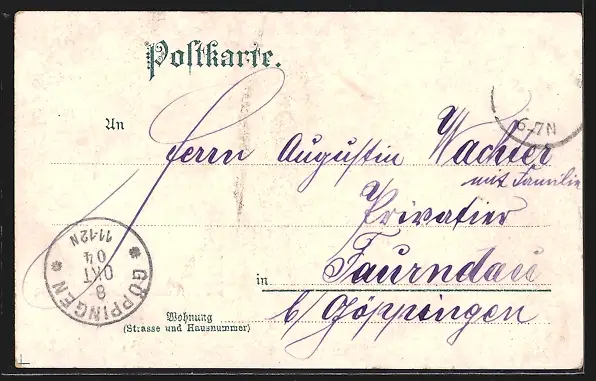 Postkarte.
An
Herrn Augustin Wachter
mit Familie
Privatier
in Faurndau
b/Göppingen
Wohnung
(Strasse und Hausnummer)
6-7N
GÖPPINGEN
8
OKT
04
11-12N